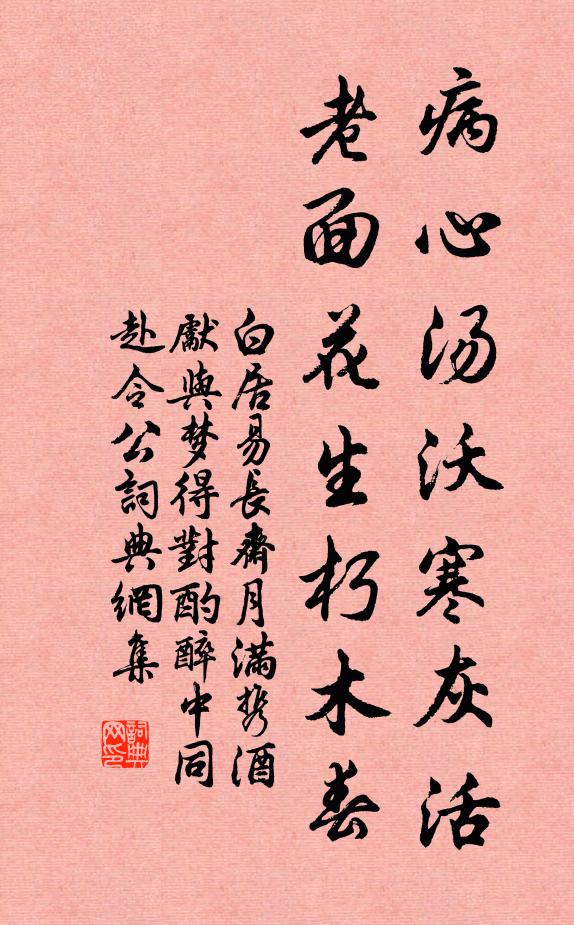 病心汤沃寒灰活
老面花生朽木春
白居易長齋月满携酒
獻與梦得對酌醉中同
赴令公詞典網集
詞典网印